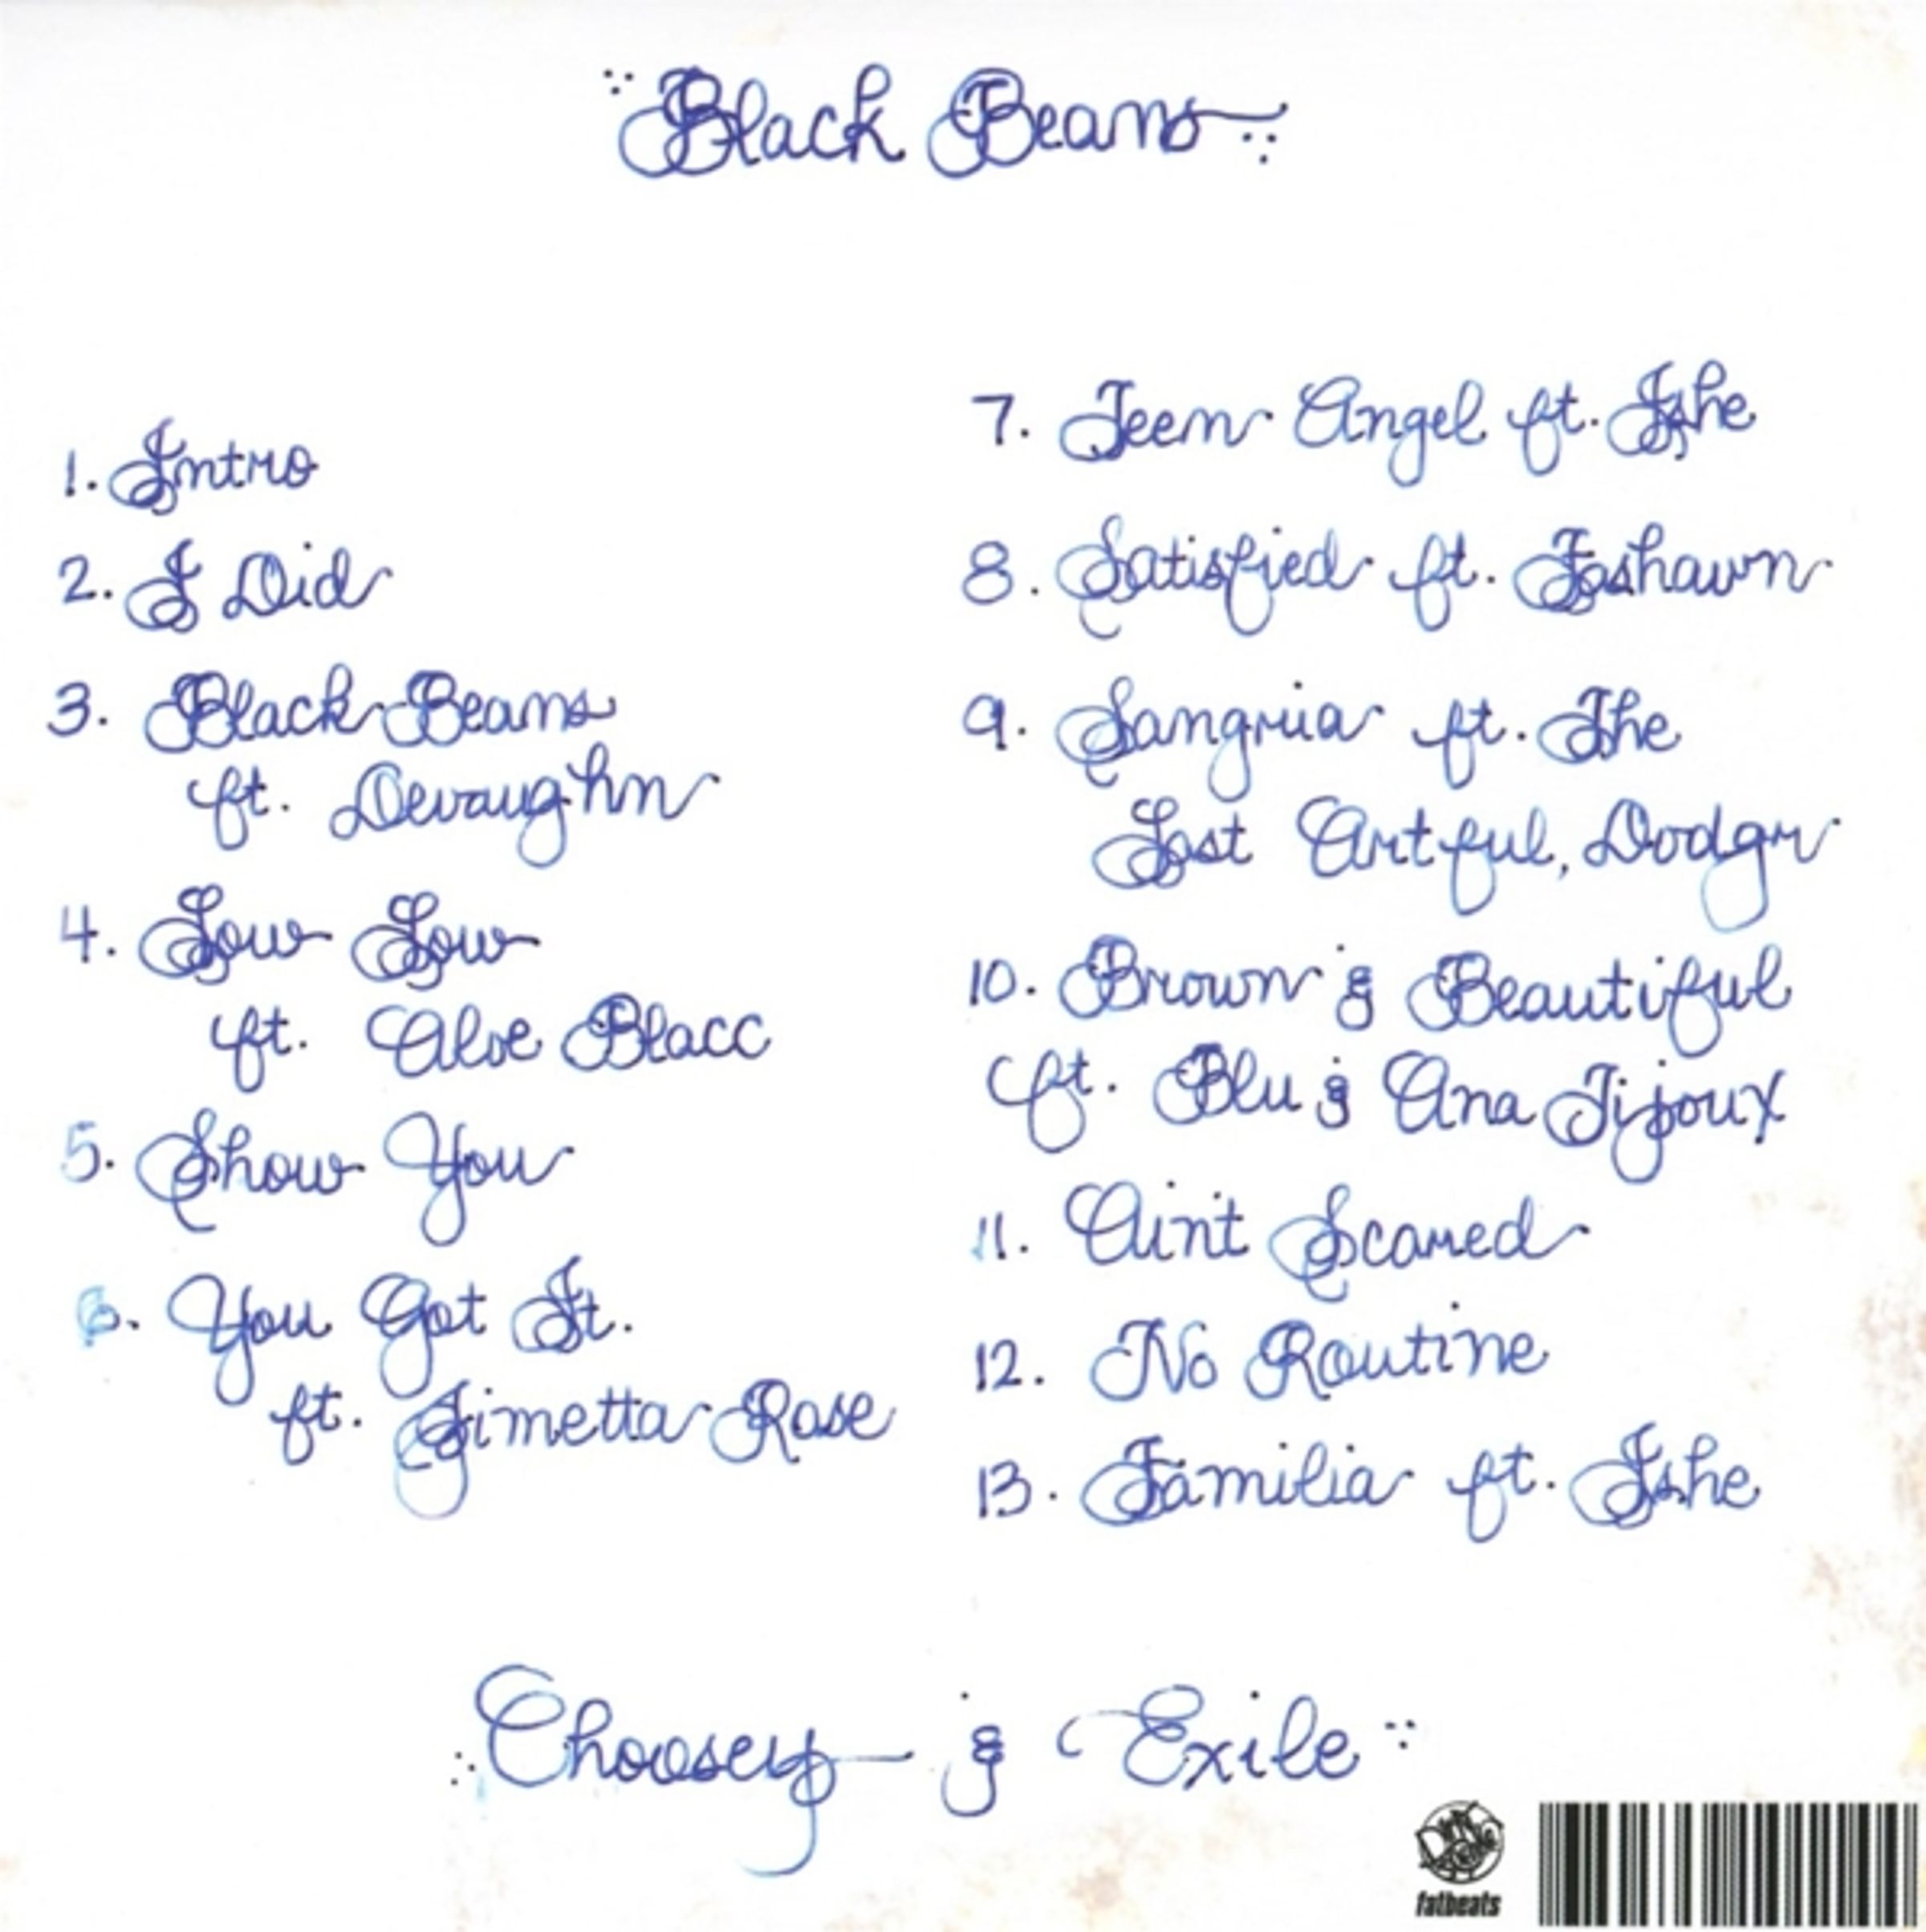 Black Beans
1. Intro
2. I Did
3. Black Beans
ft. Devaughn
4. Low Low
ft. Aloe Blacc
5. Show You
6. You Got It.
ft. Jimetta Rose
7. Teen Angel ft. Ishe
8. Satisfied ft. Fashawn
9. Sangria ft. The
Last Artful, Dodgr
10. Brown & Beautiful
ft. Blu & Ana Tijoux
11. Aint Scared
12. No Routine
13. Familia ft. Ishe
Choosey & Exile
Dirty Science
fatbeats